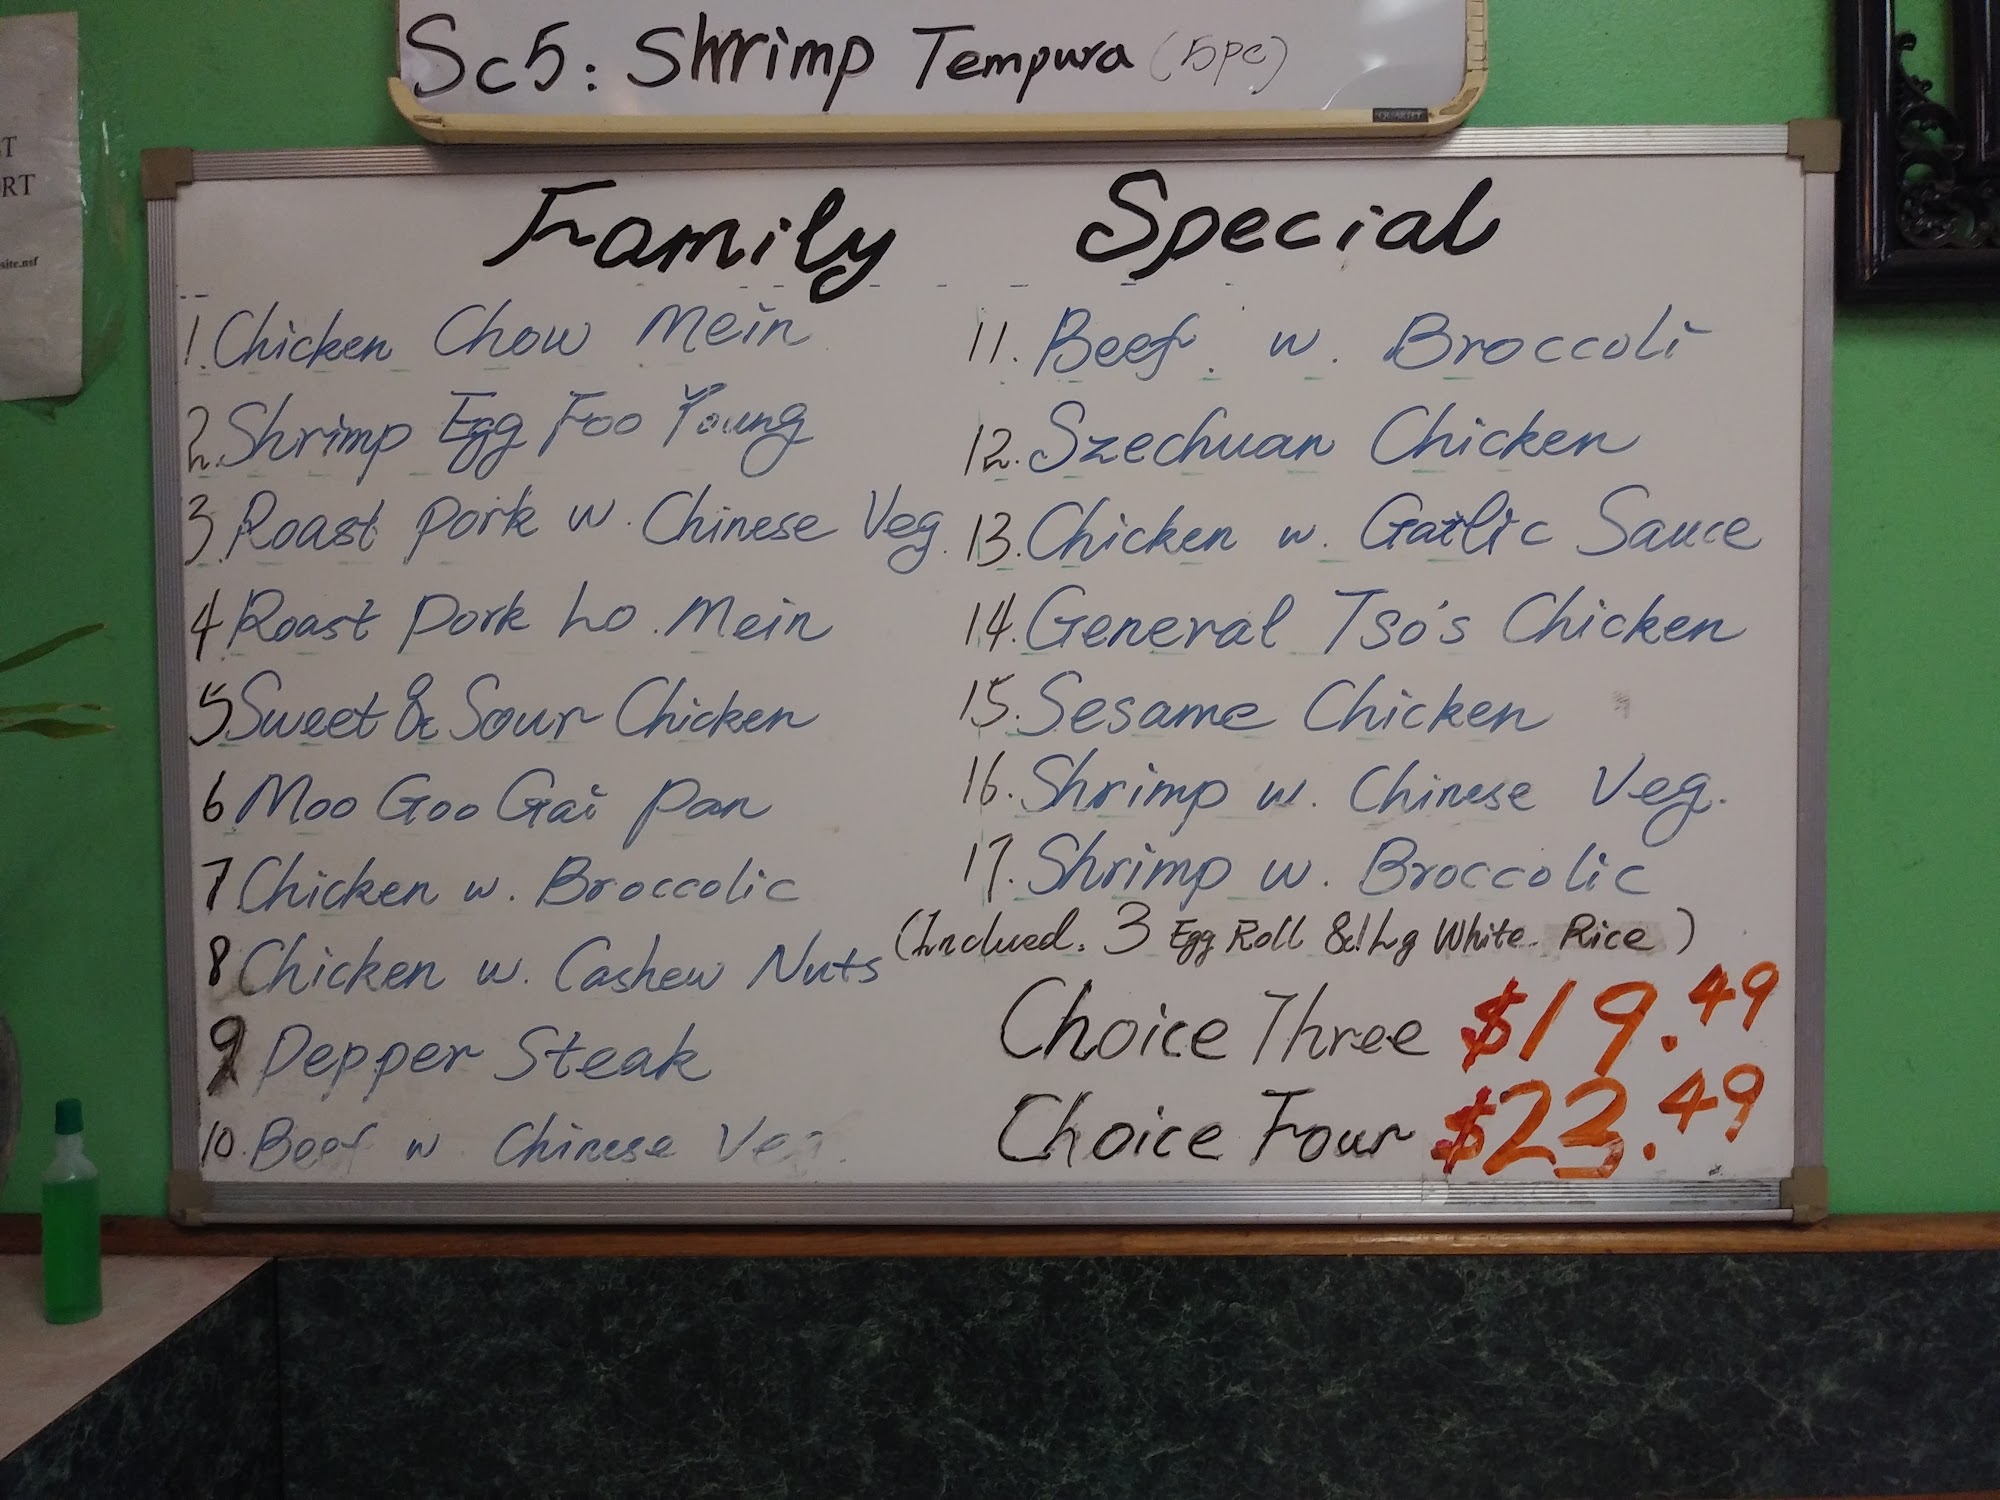 T
RT
site.nsf
Sc5: Shrimp Tempura (5pc)
QUARTET
Family Special
1. Chicken Chow Mein
2. Shrimp Egg Foo Young
3. Roast Pork w. Chinese Veg.
4 Roast Pork Lo Mein
5 Sweet & Sour Chicken
6 Moo Goo Gai Pan
7 Chicken w. Broccolic
8 Chicken w. Cashew Nuts
9 Pepper Steak
10. Beef w Chinese Veg.
11. Beef w. Broccoli
12. Szechuan Chicken
13. Chicken w. Garlic Sauce
14. General Tso's Chicken
15. Sesame Chicken
16. Shrimp w. Chinese Veg.
17. Shrimp w. Broccolic
(Inclued. 3 Egg Roll & 1 Lg White Rice)
Choice Three $19.49
Choice Four $23.49